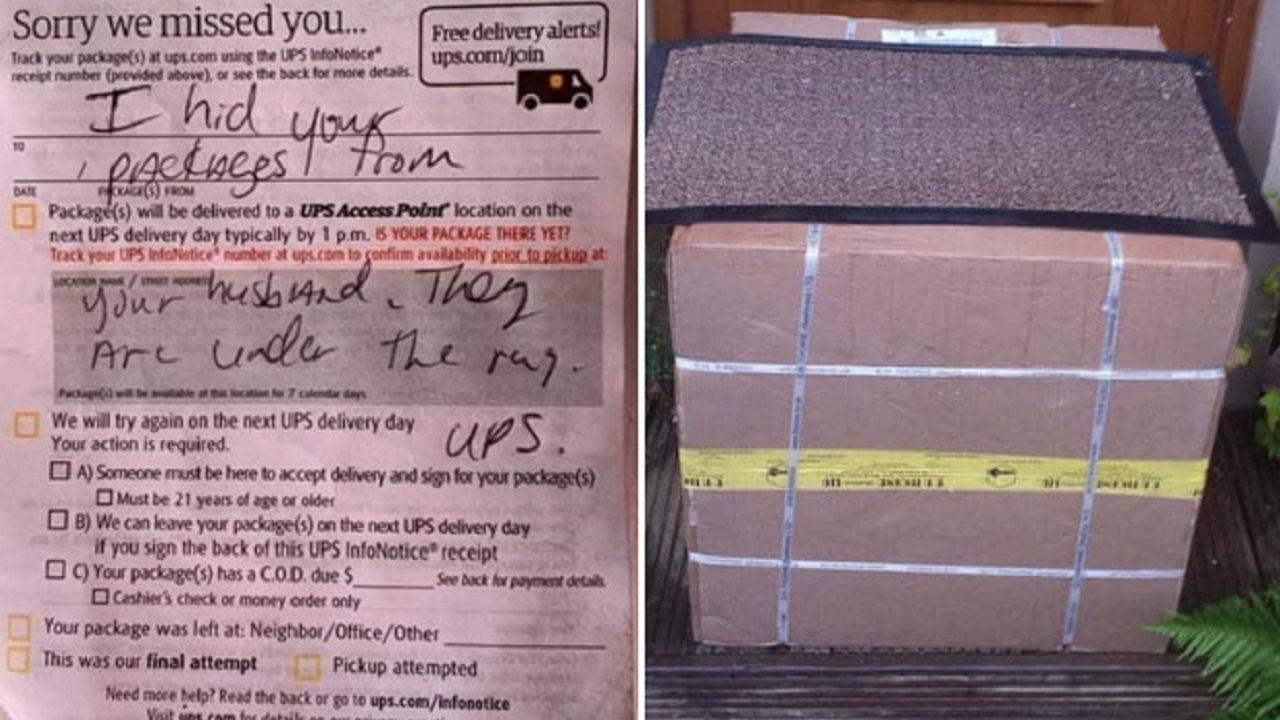 Sorry we missed you...
Track your package(s) at ups.com using the UPS InfoNotice®
receipt number (provided above), or see the back for more details.
Free delivery alerts!
ups.com/join
I hid your
TO
packages from
DATE PACKAGE(S) FROM
Package(s) will be delivered to a UPS Access Point® location on the
next UPS delivery day typically by 1 p.m. IS YOUR PACKAGE THERE YET?
Track your UPS InfoNotice® number at ups.com to confirm availability prior to pickup at:
LOCATION NAME / STREET ADDRESS
your husband. They
Are under the rug.
Package(s) will be available at this location for 7 calendar days
We will try again on the next UPS delivery day
Your action is required.
UPS.
A) Someone must be here to accept delivery and sign for your package(s)
Must be 21 years of age or older
B) We can leave your package(s) on the next UPS delivery day
if you sign the back of this UPS InfoNotice® receipt
C) Your package(s) has a C.O.D. due $ See back for payment details.
Cashier's check or money order only
Your package was left at: Neighbor/Office/Other
This was our final attempt Pickup attempted
Need more help? Read the back or go to ups.com/infonotice
Visit ups.com for details on our privacy